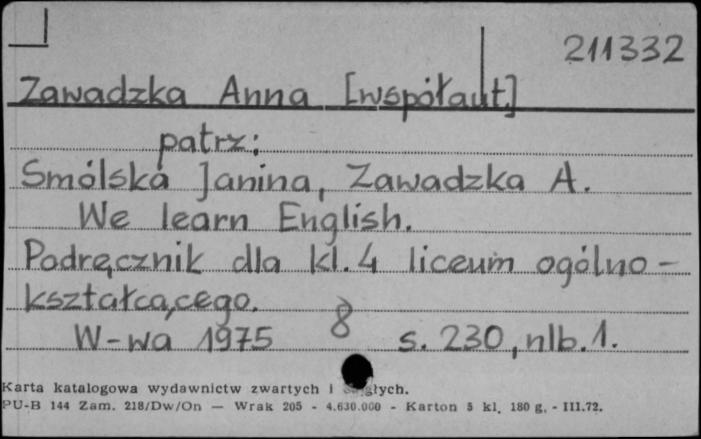 211332
Zawadzka Anna [współaut.]
patrz:
Smólska Janina, Zawadzka A.
We learn English.
Podręcznik dla kl. 4 liceum ogólno-
kształcącego.
W-wa 1975 8 s. 230, nlb. 1.
Karta katalogowa wydawnictw zwartych i ciągłych.
PU-B 144 Zam. 218/Dw/On — Wrak 205 - 4.630.000 - Karton 5 kl. 180 g. - III.72.